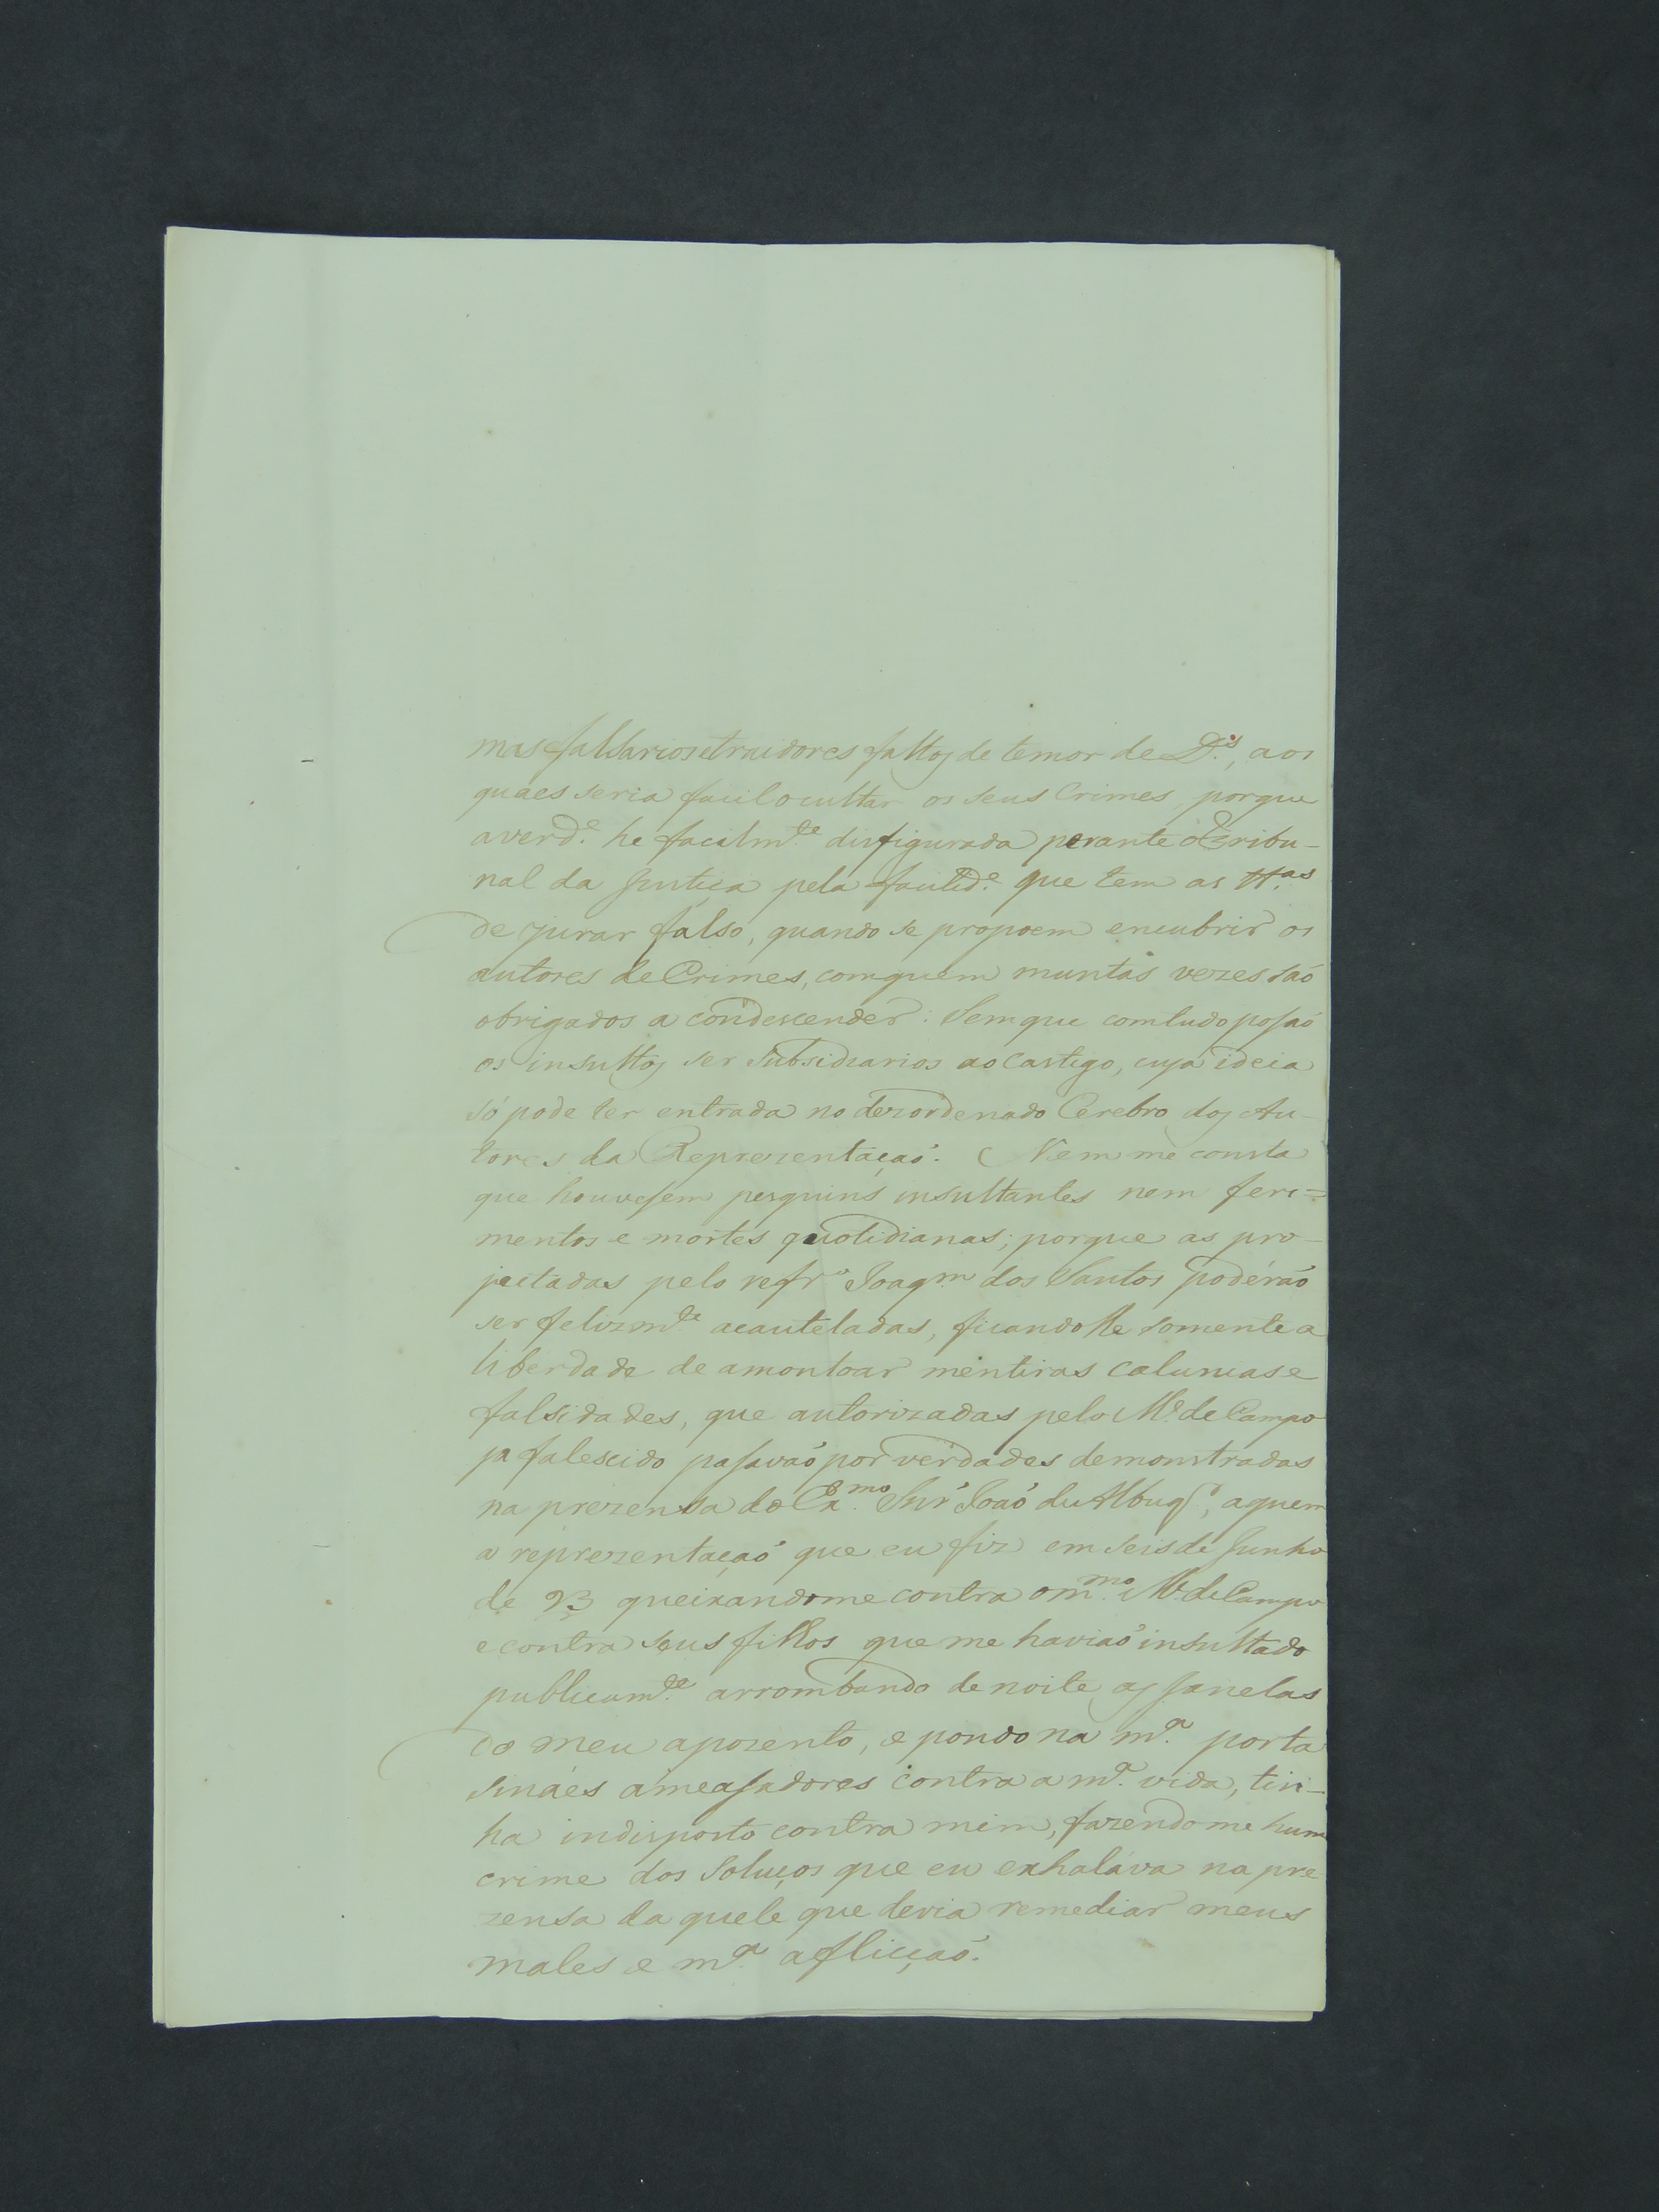 mas falsarios etraidores faltos de temor de D.s, aos
quaes seria facil ocultar os seus Crimes, porque
averd.e he facilm.te disfigurada perante oTribu-
nal da Justiça pela facilid.e que tem as tt.as
de jurar falso, quando se propoem encubrir os
autores de Crimes, comquem muntas vezes saó
obrigados a condescender: Semque comtudo posaó
os insultos ser Subsidiarios ao Castigo, cuja ideia
só pode ter entrada no dezordenado Cerebro dos Au-
tores da Reprezentaçaó. Nem me consta
que houvesem pesquins insultantes nem feri=
mentos e mortes quotidianas; porque as pro-
jectadas pelo refr.o Joaq.m dos Santos poderáo
ser felizm.te acauteladas, ficandolle somente a
liberdade de amontoar mentiras calunias e
falsidades, que autorizadas pelo M.e de Campo
ja falescido pasavaó por verdades demonstradas
na prezensa do Ex.mo Snr Joaó de Albuq.e, aquem
a reprezentaçaó que eu fiz em seis de Junho
de 93 queixandome contra om.mo M.e de Campo
e contra seus filhos que me haviaó insultado
publicam.te arrombando de noite as Janelas
do meu apozento, e pondo na m.a porta
sináes ameasadores contra a m.a vida, tin-
ha indisposto contra mim, fazendome hum
crime dos Soluços que eu exhaláva na pre
zensa da quele que devia remediar meus
males e m.a aflicçaó.